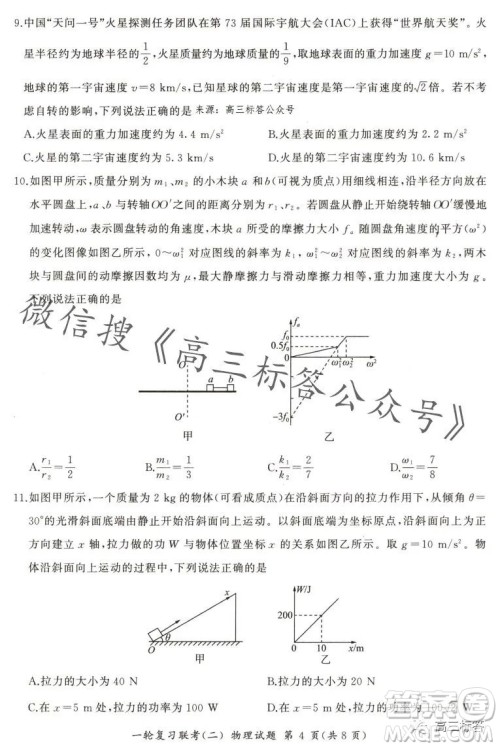 9.中国“天问一号”火星探测任务团队在第 73 届国际宇航大会(IAC)上获得“世界航天奖”。火
星半径约为地球半径的1/2,火星质量约为地球质量的1/9,地球表面的重力加速度 g=10 m/s²,
地球的第一宇宙速度 v=8 km/s,星球的第二宇宙速度是第一宇宙速度的√2倍,若不考虑
自转的影响,下列说法正确的是 来源:高三标答公众号
A.火星表面的重力加速度约为 4.4 m/s² B.火星表面的重力加速度约为 2.2 m/s²
C.火星的第二宇宙速度约为 5.3 km/s D.火星的第二宇宙速度约为 10.6 km/s
10.如图甲所示,质量分别为 m₁、m₂ 的小木块 a 和 b(可视为质点)用细线相连,沿半径方向放在
水平圆盘上,a、b与转轴 OO′之间的距离分别为 r₁、r₂。若圆盘从静止开始绕转轴 OO′缓慢地
加速转动,ω表示圆盘转动的角速度,木块a与圆盘间的摩擦力大小fₐ随圆盘角速度的平方(ω²)
的变化图像如图乙所示,0~ω₁² 对应图线的斜率为 k₁,ω₁²~ω₂² 对应图线的斜率为 k₂,两木
块与圆盘间的动摩擦因数均为 μ,最大静摩擦力与滑动摩擦力相等,重力加速度大小为 g。
下列说法正确的是
微信搜《高三标答公众号》
O
a b
O′
甲
fₐ
f₀
0.5f₀
0
ω₁² ω₂² ω²
-f₀
乙
A.r₁/r₂=1/2 B.m₁/m₂=1/2 C.k₁/k₂=2/7 D.ω₁²/ω₂²=7/8
11.如图甲所示,一个质量为 2 kg 的物体(可看成质点)在沿斜面方向的拉力作用下,从倾角 θ=
30°的光滑斜面底端由静止开始沿斜面向上运动。以斜面底端为坐标原点,沿斜面向上为正方向
建立 x 轴,拉力做的功 W 与物体位置坐标 x 的关系如图乙所示。取 g=10 m/s²。物
体沿斜面向上运动的过程中,下列说法正确的是
x
θ
甲
W/J
200
0 10 x/m
乙
A.拉力的大小为 40 N B.拉力的大小为 20 N
C.在 x=5 m 处,拉力的功率为 100 W D.在 x=5 m 处,拉力的功率为 200 W
一轮复习联考(二) 物理试题 第 4 页(共 8 页)
高三标答